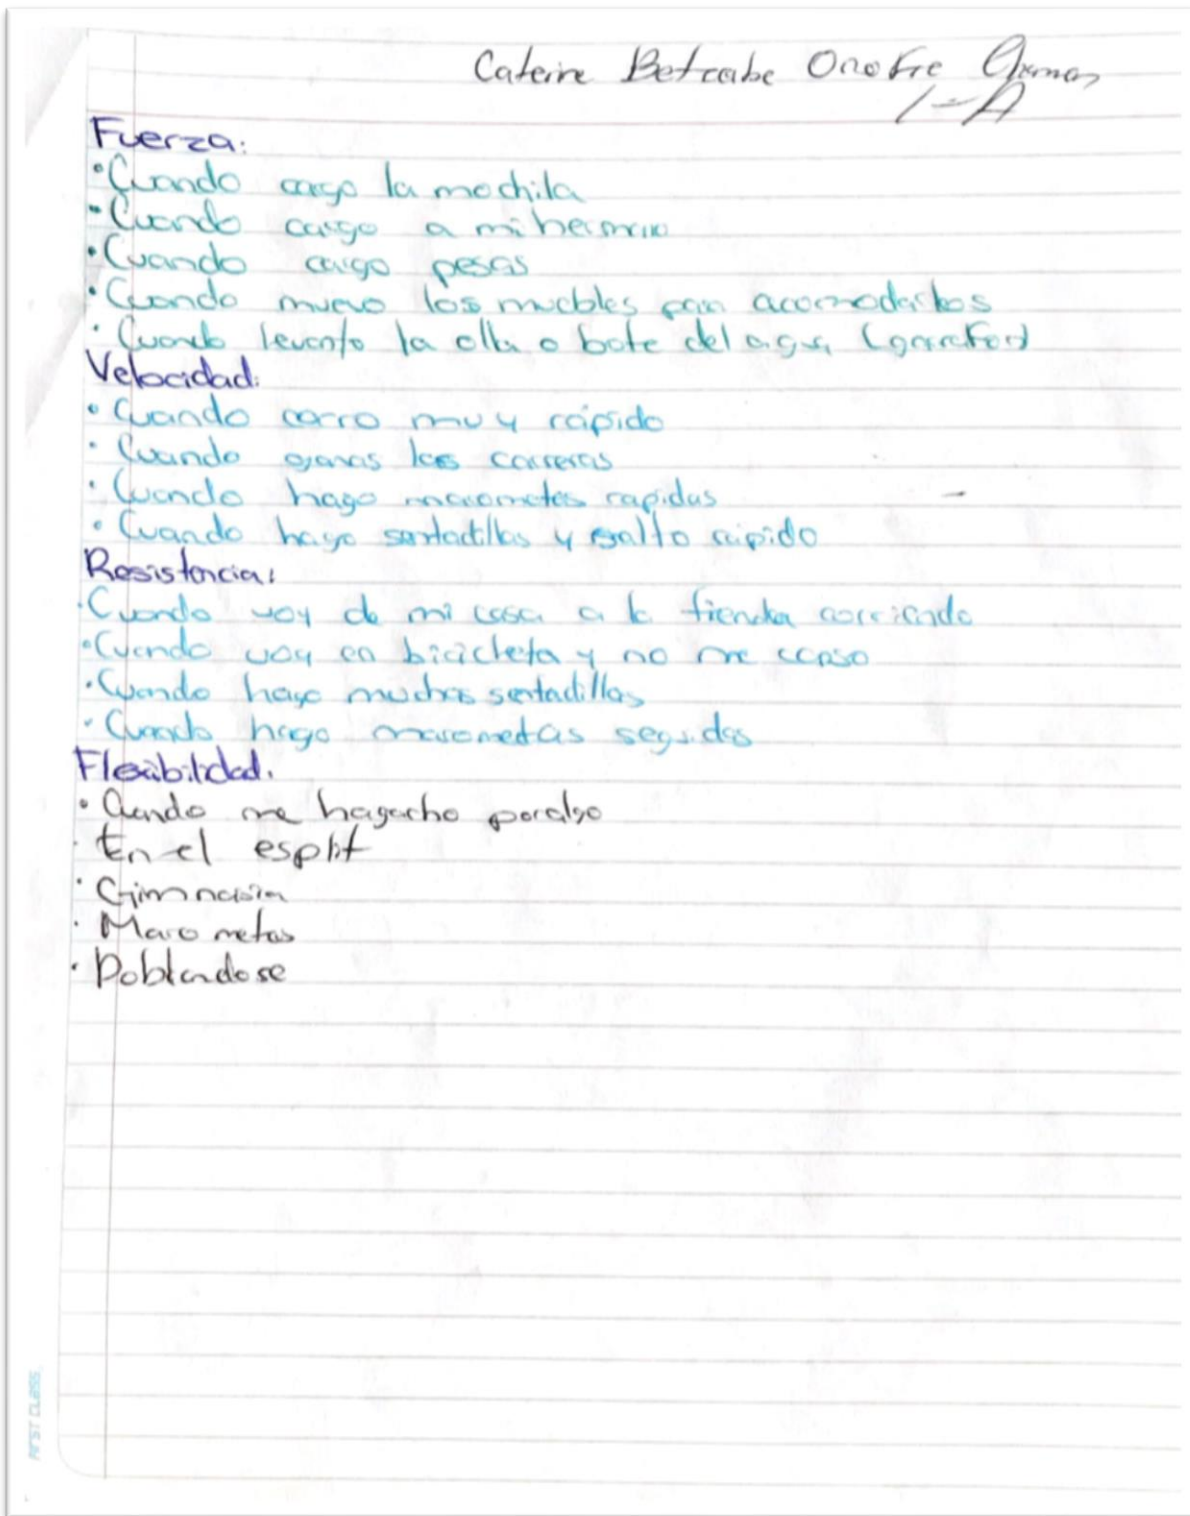 Caterine Betcabe Onofre
1-A
Fuerza:
• Cuando cargo la mochila
• Cuando cargo a mi hermano
• Cuando cargo pesas
• Cuando muevo los muebles para acomodarlos
• Cuando levanto la olla o bote del agua (garrafon)
Velocidad:
• Cuando corro muy rápido
• Cuando ganas las carreras
• Cuando hago marometas rapidas
• Cuando hago sentadillas y salto rápido
Resistencia:
• Cuando voy de mi casa a la tienda corriendo
• Cuando voy en bicicleta y no me canso
• Cuando hago muchas sentadillas
• Cuando hago marometas seguidas
Flexibilidad.
• Cuando me hagacho por algo
• En el esplit
• Gimnasia
• Marometas
• Doblandose
FIRST CLASS